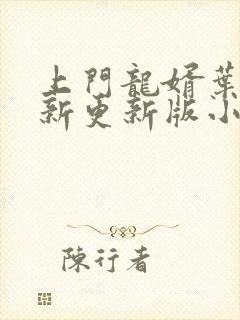 上門龍婿葉
新更新版小
陳行者